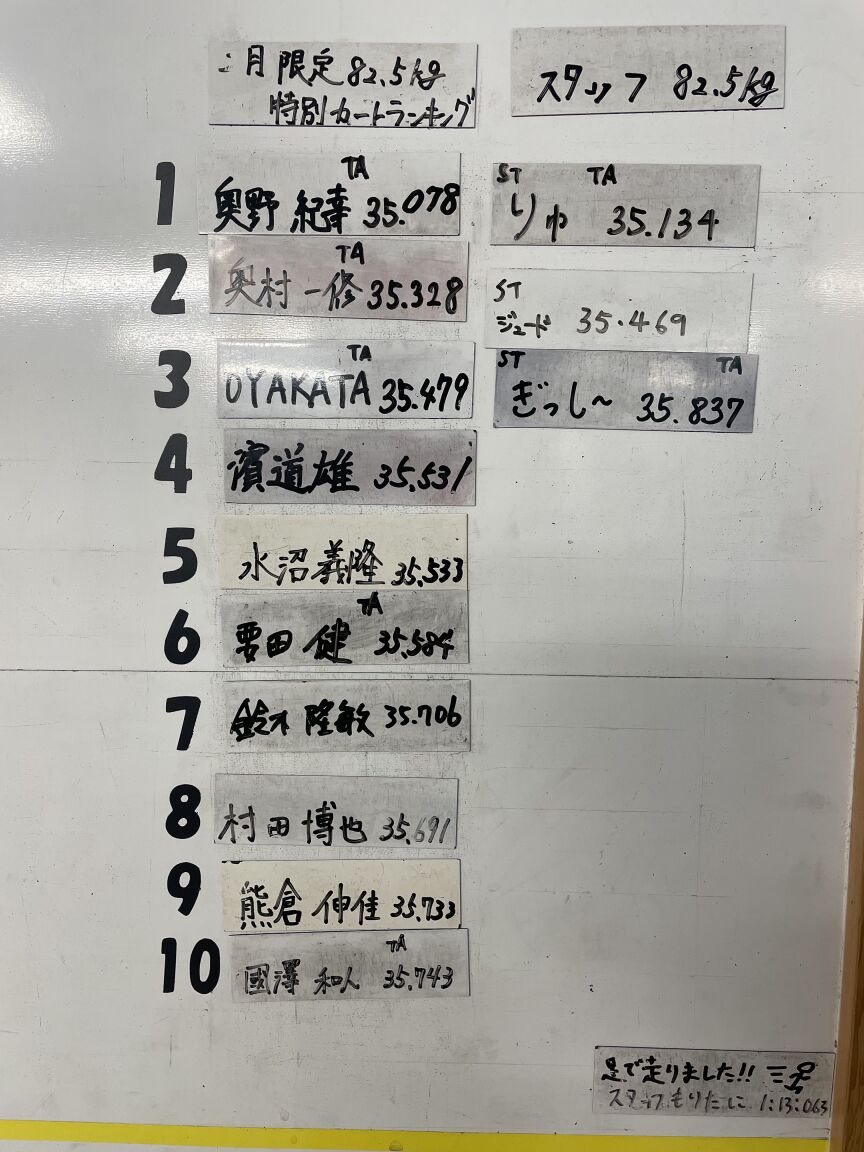 月限定82.5kg
特別カートランキング
スタッフ 82.5kg
1 奥野 紀幸 TA 35.078
ST りゅ TA 35.134
2 奥村 一修 TA 35.328
ST ジュード 35.469
3 OYAKATA TA 35.479
ST ぎっし～ TA 35.837
4 濱道雄 35.531
5 水沼義隆 35.533
6 要田 健 TA 35.584
7 鈴木 隆敏 35.706
8 村田博也 35.691
9 熊倉 伸佳 35.733
10 國澤 和人 TA 35.743
足で走りました!!
スタッフもりたに 1:13:063